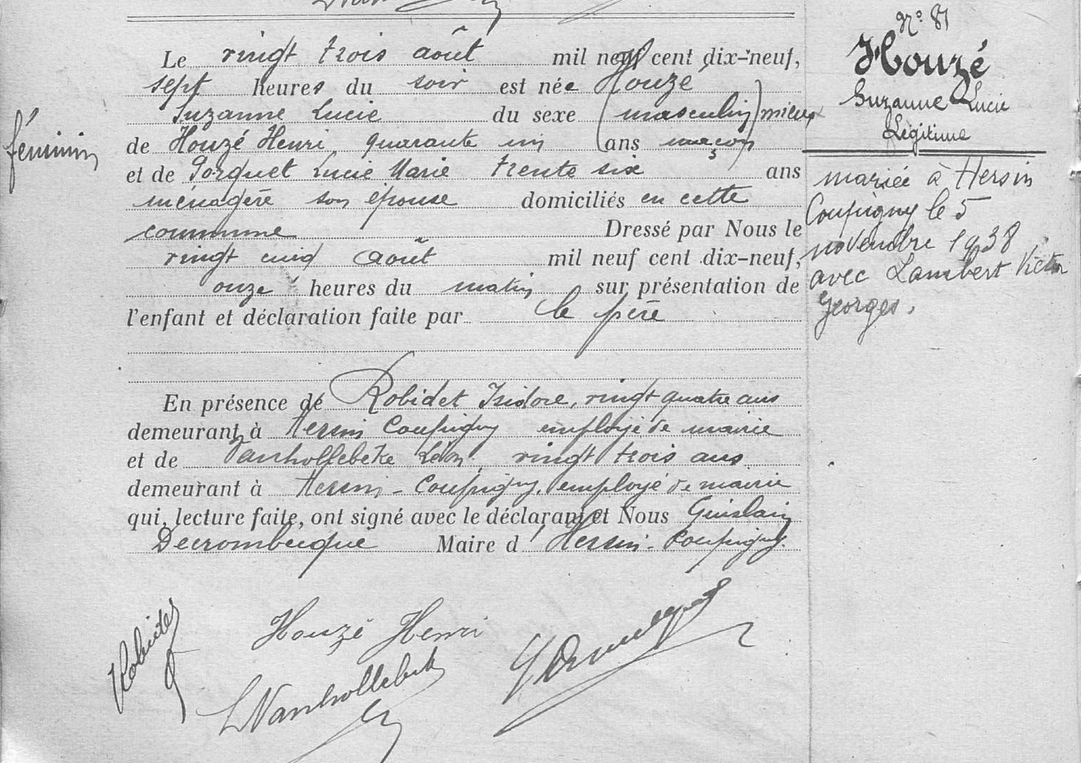 Le vingt trois août mil neuf cent dix-neuf,
sept heures du soir est née Houzé
Suzanne Lucie du sexe (masculin) mieux
féminin
de Houzé Henri quarante un ans maçon
et de Porquet Lucie Marie trente six ans
ménagère son épouse domiciliés en cette
commune Dressé par Nous le
vingt cinq août mil neuf cent dix-neuf,
onze heures du matin sur présentation de
l'enfant et déclaration faite par le père
En présence de Robidet Isidore, vingt quatre ans
demeurant à Hersin Coupigny employé de mairie
et de Vanhollebeke Léon, vingt trois ans
demeurant à Hersin-Coupigny, employé de mairie
qui, lecture faite, ont signé avec le déclarant et Nous Guislain
Decrombecque Maire d' Hersin-Coupigny.
Robidet
Houzé Henri
LVanhollebeke
N° 81
Houzé
Suzanne Lucie
Légitime
mariée à Hersin
Coupigny le 5
novembre 1938
avec Lambert Victor
Georges.